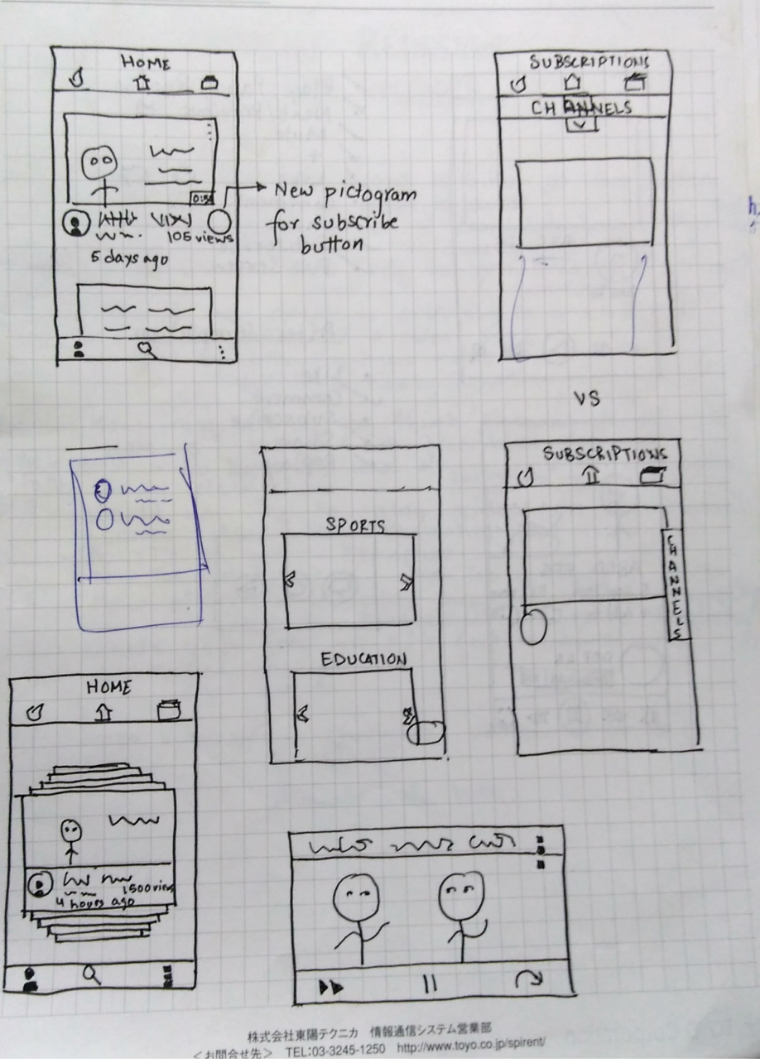 HOME
0:50
105 views
5 days ago
New pictogram
for subscribe
button
SUBSCRIPTIONS
CHANNELS
VS
SPORTS
EDUCATION
SUBSCRIPTIONS
CHANNELS
HOME
1500 views
4 hours ago
株式会社東陽テクニカ 情報通信システム営業部
＜お問合せ先＞ TEL:03-3245-1250 http://www.toyo.co.jp/spirent/